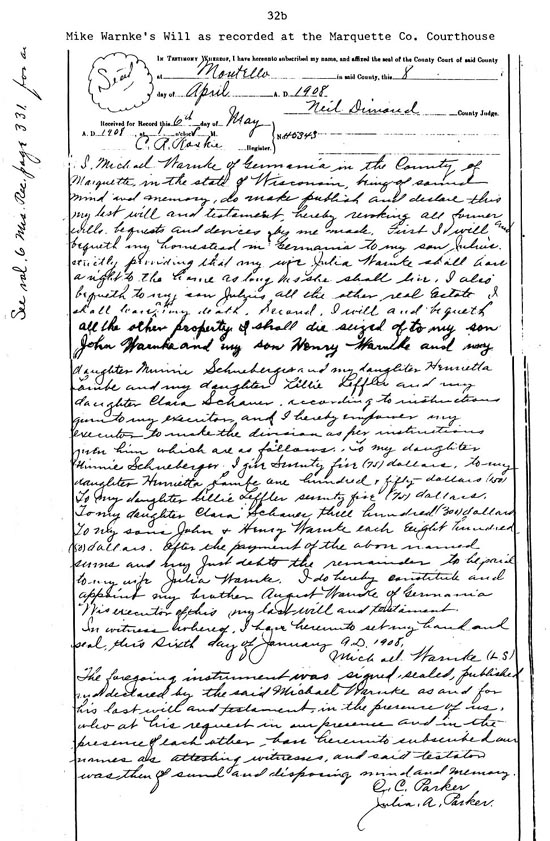 32b
Mike Warnke's Will as recorded at the Marquette Co. Courthouse
See vol. 6 Mis. Rec. page 331 for an
Seal
IN TESTIMONY WHEREOF, I have hereunto subscribed my name, and affixed the seal of the County Court of said County
at Montello in said County, this 8
day of April A. D. 1908.
Neil Dimond County Judge.
Received for Record this 6th day of May
A. D. 1908 at 1 o'clock M. No. 40343
C. A. Register.
I, Michael Warnke of Germania in the County of
Marquette, in the state of Wisconsin, being of sound
mind and memory, do make publish and declare this
my last will and testament, hereby revoking all former
wills, bequests and devices by me made. First I will and
bequeth my homestead in Germania to my son Julius.
strictly providing that my wife Julia Warnke shall have
a right to the home as long as she shall live. I also
bequeth to my son Julius, all the other real Estate I
shall leave at my death. Second, I will and bequeth
all the other property I shall die seizd of to my son
John Warnke and my son Henry Warnke and my
daughter Minnie Schneberger and my daughter Henrietta
and my daughter Lillie Leffler and my
daughter Clara Schauer, according to instructions
given to my executor, and I hereby empower my
executor to make the division as per instructions
given him which are as follows. To my daughter
Minnie Schneberger, I give seventy five (75) dollars, to my
daughter Henrietta one hundred & fifty dollars (150)
To my daughter Lillie Leffler seventy five (75) dollars.
To my daughter Clara Schauer three hundred (300) dollars
To my sons John & Henry Warnke each Eight hundred
dollars. After the payment of the above named
sums and my just debts the remainder to be paid
to my wife Julia Warnke. I do hereby constitute and
appoint my brother August Warnke of Germania
Wis executor of this my last will and testament
In witness whereof, I have hereunto set my hand and
seal, this Sixth day of January A.D. 1908,
Michael Warnke (L S)
The foregoing instrument was signed, sealed, published
and declared by the said Michael Warnke as and for
his last will and testament, in the presence of us,
who at his request in our presence and in the
presence of each other, have hereunto subscribed our
names as attesting witnesses, and said testator
was then of sound and disposing mind and memory.
C. C. Parker
Julia. A. Parker.